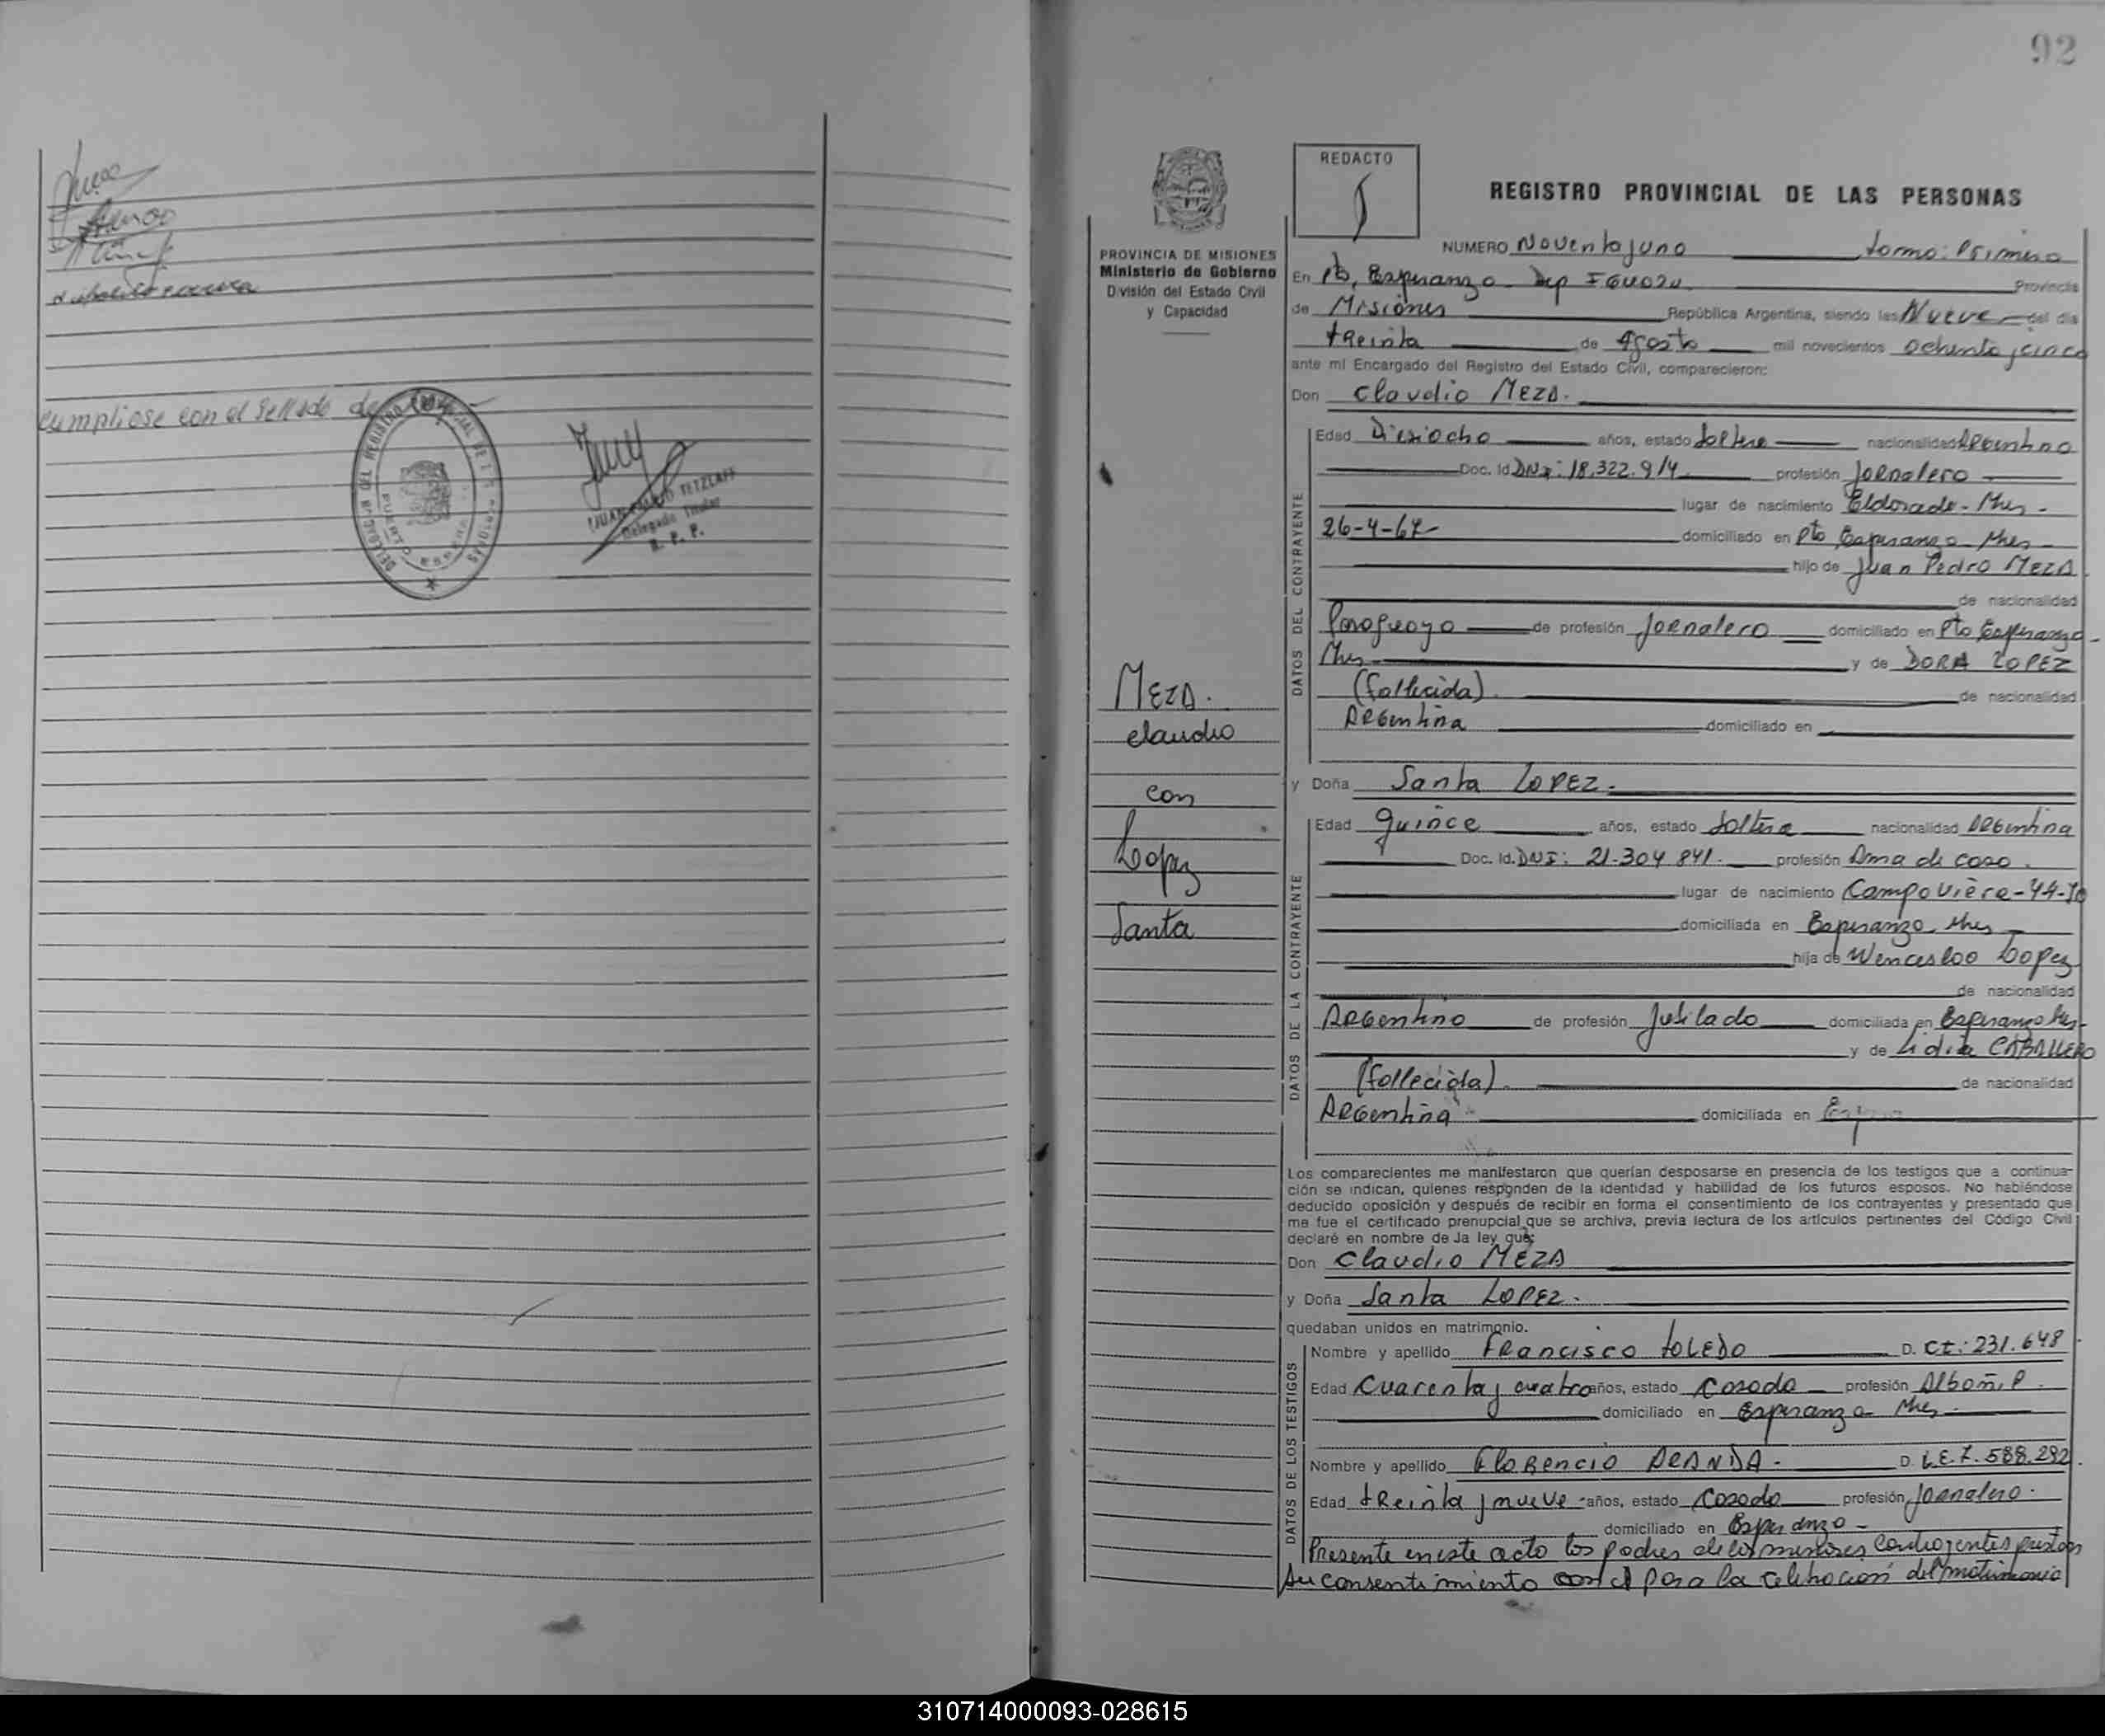 cumpliose con el sellado de Ley
JUAN TETZLAFF
Delegado Titular
R. P. P.
92
REDACTO
REGISTRO PROVINCIAL DE LAS PERSONAS
PROVINCIA DE MISIONES
Ministerio de Gobierno
División del Estado Civil
y Capacidad
NUMERO Noventa y uno tomo: Primero
En Pto, Esperanza Dep IGUAZU Provincia
de Misiones República Argentina, siendo las Nueve del día
treinta de Agosto mil novecientos ochenta y cinco
ante mi Encargado del Registro del Estado Civil, comparecieron:
Don Claudio MEZA.
DATOS DEL CONTRAYENTE
Edad Dieciocho años, estado soltero nacionalidad Argentino
Doc. Id. DNI: 18.322.914 profesión Jornalero
lugar de nacimiento Eldorado - Mnes -
26-4-67 domiciliado en Pto Esperanza Mnes
hijo de Juan Pedro MEZA.
de nacionalidad
Paraguayo de profesión Jornalero domiciliado en Pto Esperanza -
Mnes - y de DORA LOPEZ
(fallecida). de nacionalidad
Argentina domiciliado en
MEZA.
claudio
con
Lopez
Santa
y Doña Santa LOPEZ.
DATOS DE LA CONTRAYENTE
Edad quince años, estado soltera nacionalidad Argentina
Doc. Id. DNI: 21.304 841. profesión Ama de casa.
lugar de nacimiento Campo Viera - 4-4-70
domiciliada en Esperanza Mnes
hija de Wenceslao Lopez
de nacionalidad
Argentino de profesión Jubilado domiciliada en Esperanza Mnes-
y de Lidia CABALLERO
(fallecida). de nacionalidad
Argentina domiciliada en
Los comparecientes me manifestaron que querían desposarse en presencia de los testigos que a continua-
ción se indican, quienes responden de la identidad y habilidad de los futuros esposos. No habiéndose
deducido oposición y después de recibir en forma el consentimiento de los contrayentes y presentado que
me fue el certificado prenupcial que se archiva, previa lectura de los artículos pertinentes del Código Civil
declaré en nombre de la ley que:
Don Claudio MEZA
y Doña Santa LOPEZ.
quedaban unidos en matrimonio.
DATOS DE LOS TESTIGOS
Nombre y apellido Francisco TOLEDO D. CI.: 231.648
Edad Cuarenta y cuatro años, estado Casado profesión Albañil.
domiciliado en Esperanza Mnes.
Nombre y apellido Florencio ARANDA. D. L.E. 7.588.292.
Edad treinta y nueve años, estado Casado profesión Jornalero.
domiciliado en Esperanza -
Presente en este acto los padres de los menores contrayentes prestan
su consentimiento para la celebración del matrimonio
310714000093-028615